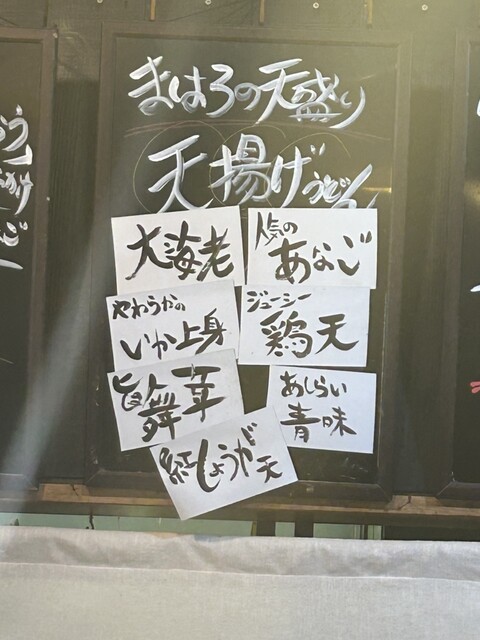 まはろの天盛り
天揚げうどん
大海老
人気の
あなご
やわらかの
いか上身
ジューシー
鶏天
旨
舞茸
あしらい
青味
紅しょうが天